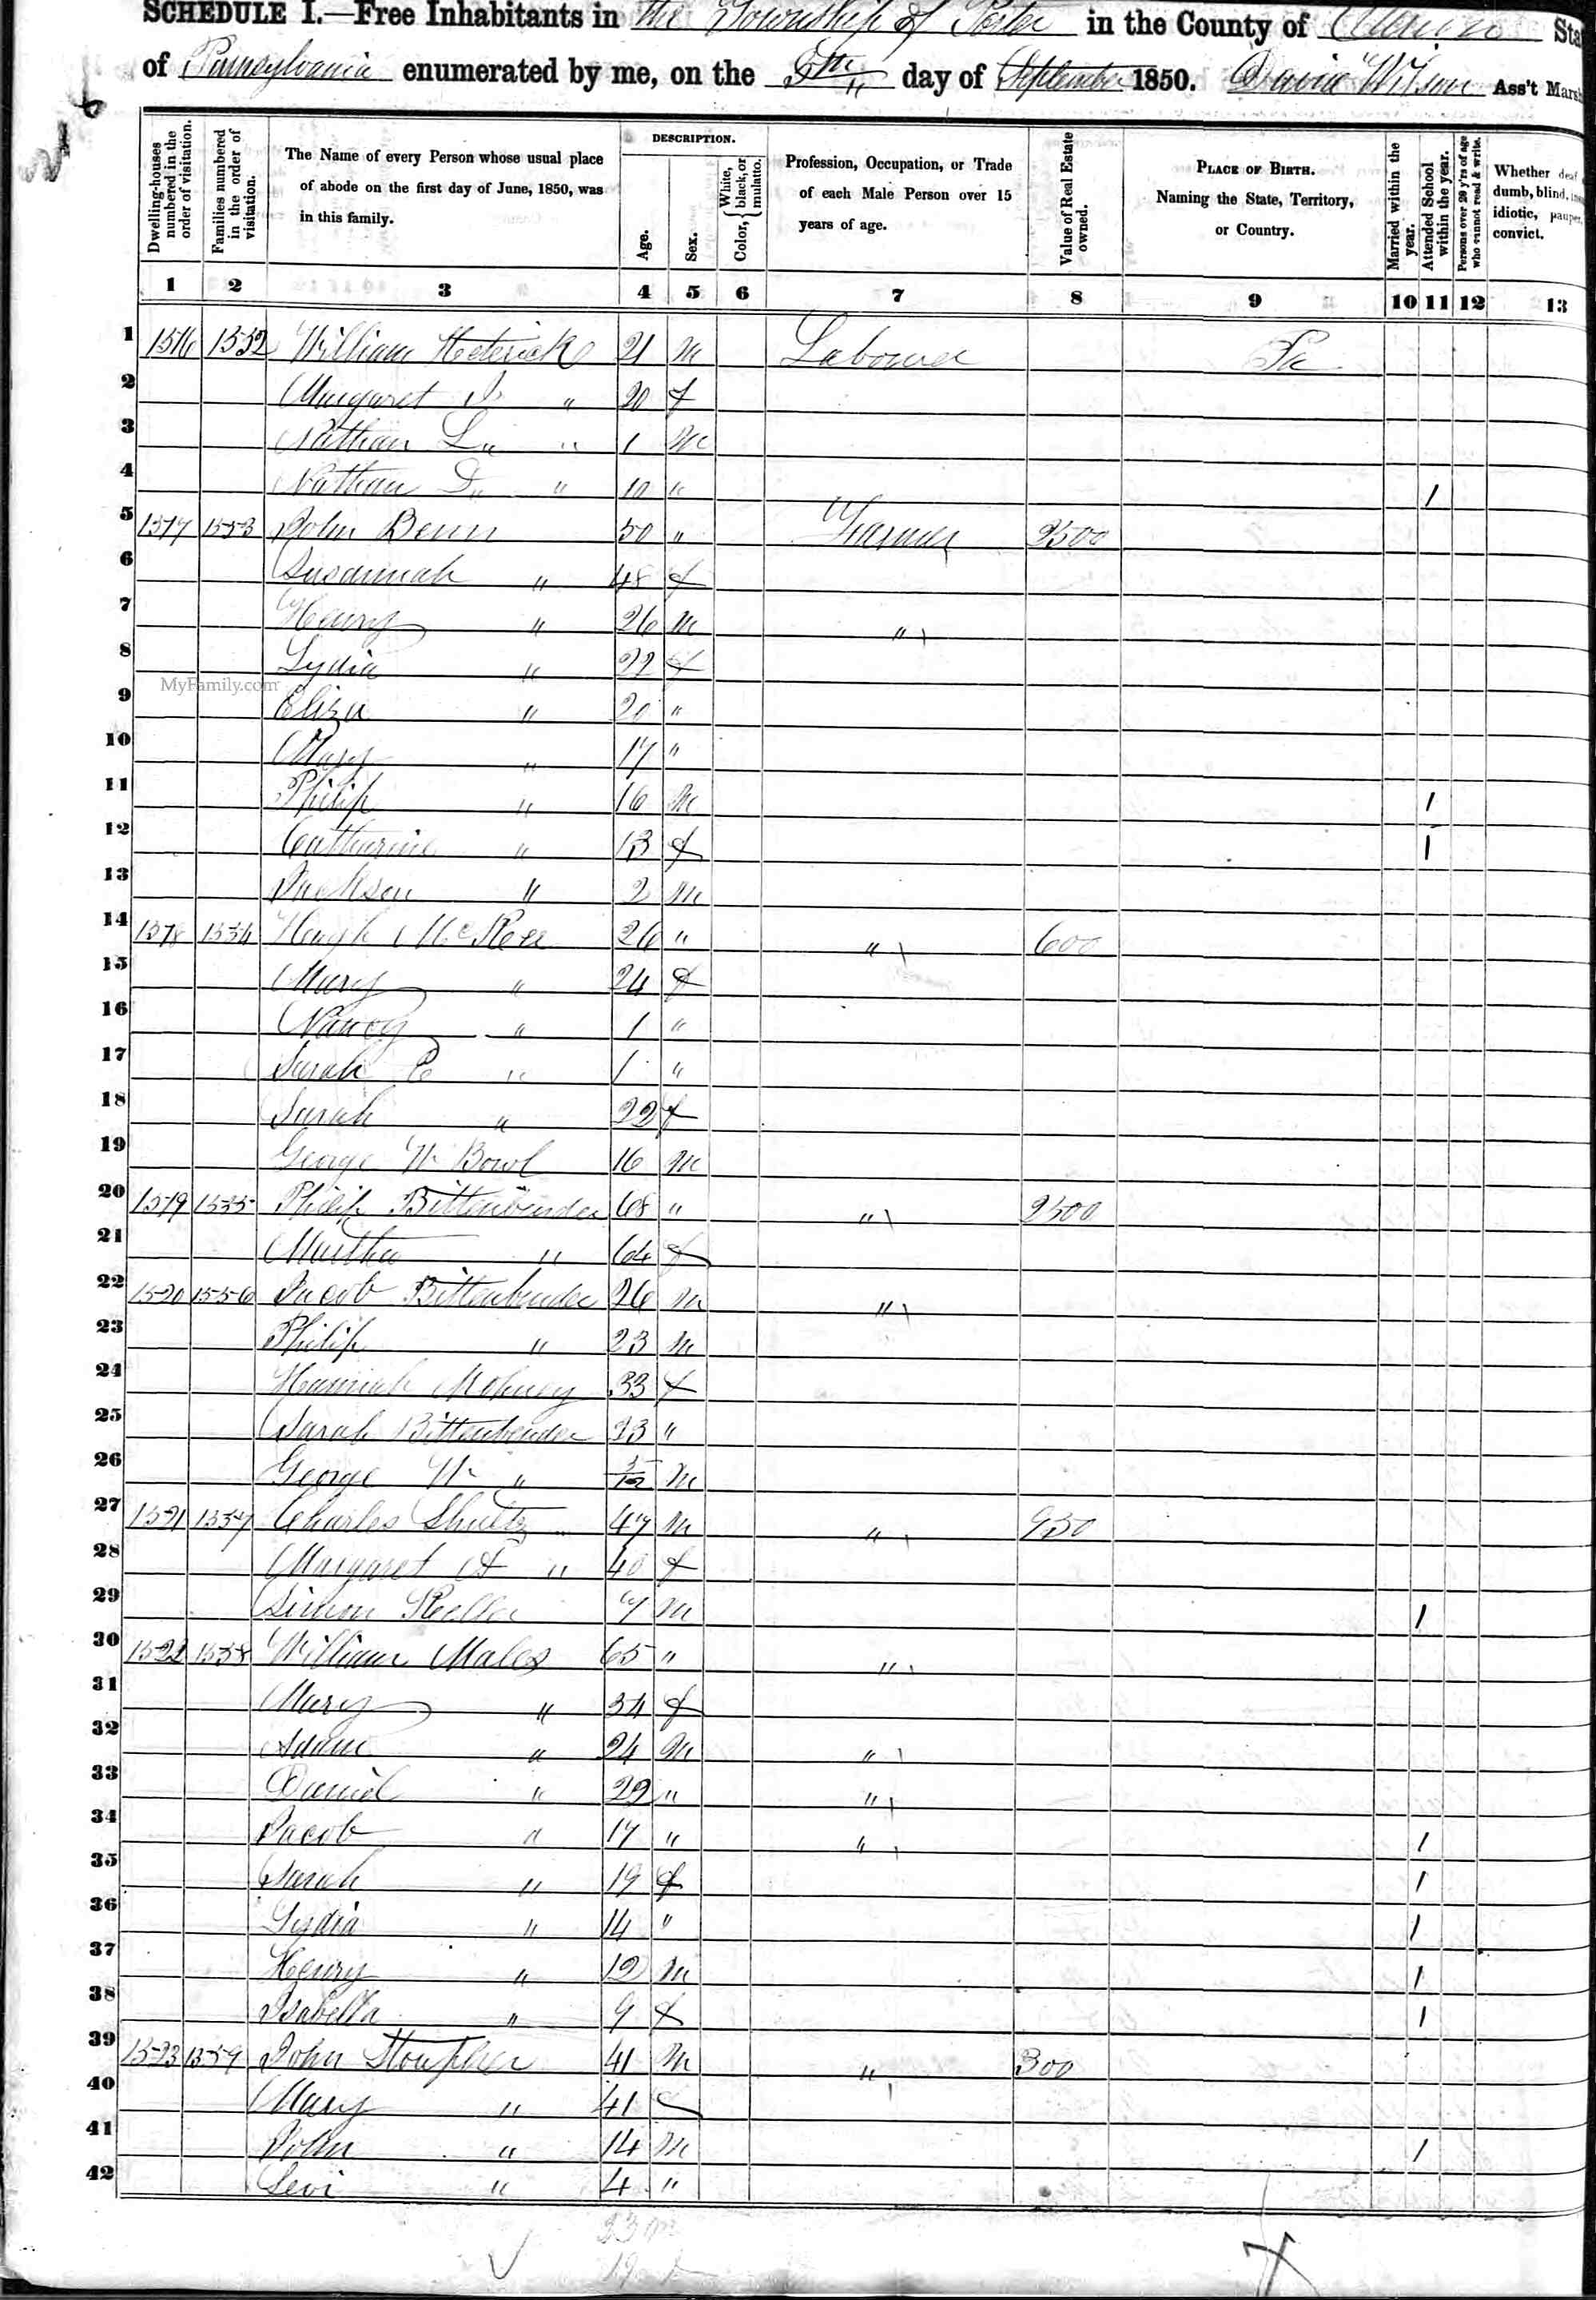 SCHEDULE I.—Free Inhabitants in the Township of Porter in the County of Clarion Sta
of Pennsylvania enumerated by me, on the 5th day of September 1850. David Wilson Ass't Mars
Dwelling-houses numbered in the order of visitation.
Families numbered in the order of visitation.
The Name of every Person whose usual place of abode on the first day of June, 1850, was in this family.
DESCRIPTION.
Age.
Sex.
Color, { White, black, or mulatto.
Profession, Occupation, or Trade of each Male Person over 15 years of age.
Value of Real Estate owned.
PLACE OF BIRTH. Naming the State, Territory, or Country.
Married within the year.
Attended School within the year.
Persons over 20 y'rs of age who cannot read & write.
Whether deaf dumb, blind, idiotic, pauper, convict.
1 2 3 4 5 6 7 8 9 10 11 12 13
1 1516 1532 William Heterick 21 m Labourer Pa
2 Margaret J. " 20 f
3 Nathan L. " 1 m
4 Nathan D. " 10 " 1
5 1517 1553 John Benn 50 " Farmer 2500
6 Susannah " 48 f
7 Henry " 26 m "
MyFamily.com
8 Lydia " 22 f
9 Eliza " 20 "
10 Mary " 17 "
11 Philip " 16 m 1
12 Catharine " 13 f 1
13 Jackson " 2 m
14 1518 1534 Hugh McKee 26 " " 600
15 Mary " 24 f
16 Nancy " 1 "
17 Sarah E " 1 "
18 Sarah " 22 f
19 George W. Bowl 16 m
20 1519 1535 Philip Bittenbender 68 " " 2500
21 Martha " 64 f
22 1520 1556 Jacob Bittenbender 26 m "
23 Philip " 23 m
24 Hannah Mohney 33 f
25 Sarah Bittenbender 23 "
26 George W. " 5/12 m
27 1521 1537 Charles Shultz 47 m " 950
28 Margaret A " 40 f
29 Simon 7 m 1
30 1522 1538 William Males 65 " "
31 Mary " 54 f
32 Adam " 24 m "
33 Daniel " 22 " "
34 Jacob " 17 " " 1
35 Sarah " 19 f 1
36 Lydia " 14 " 1
37 Henry " 12 m 1
38 Isabella " 9 f 1
39 1523 1559 John Stoupher 41 m " 300
40 Mary " 41 f
41 John " 14 m 1
42 Levi " 4 "
23 m
19 f